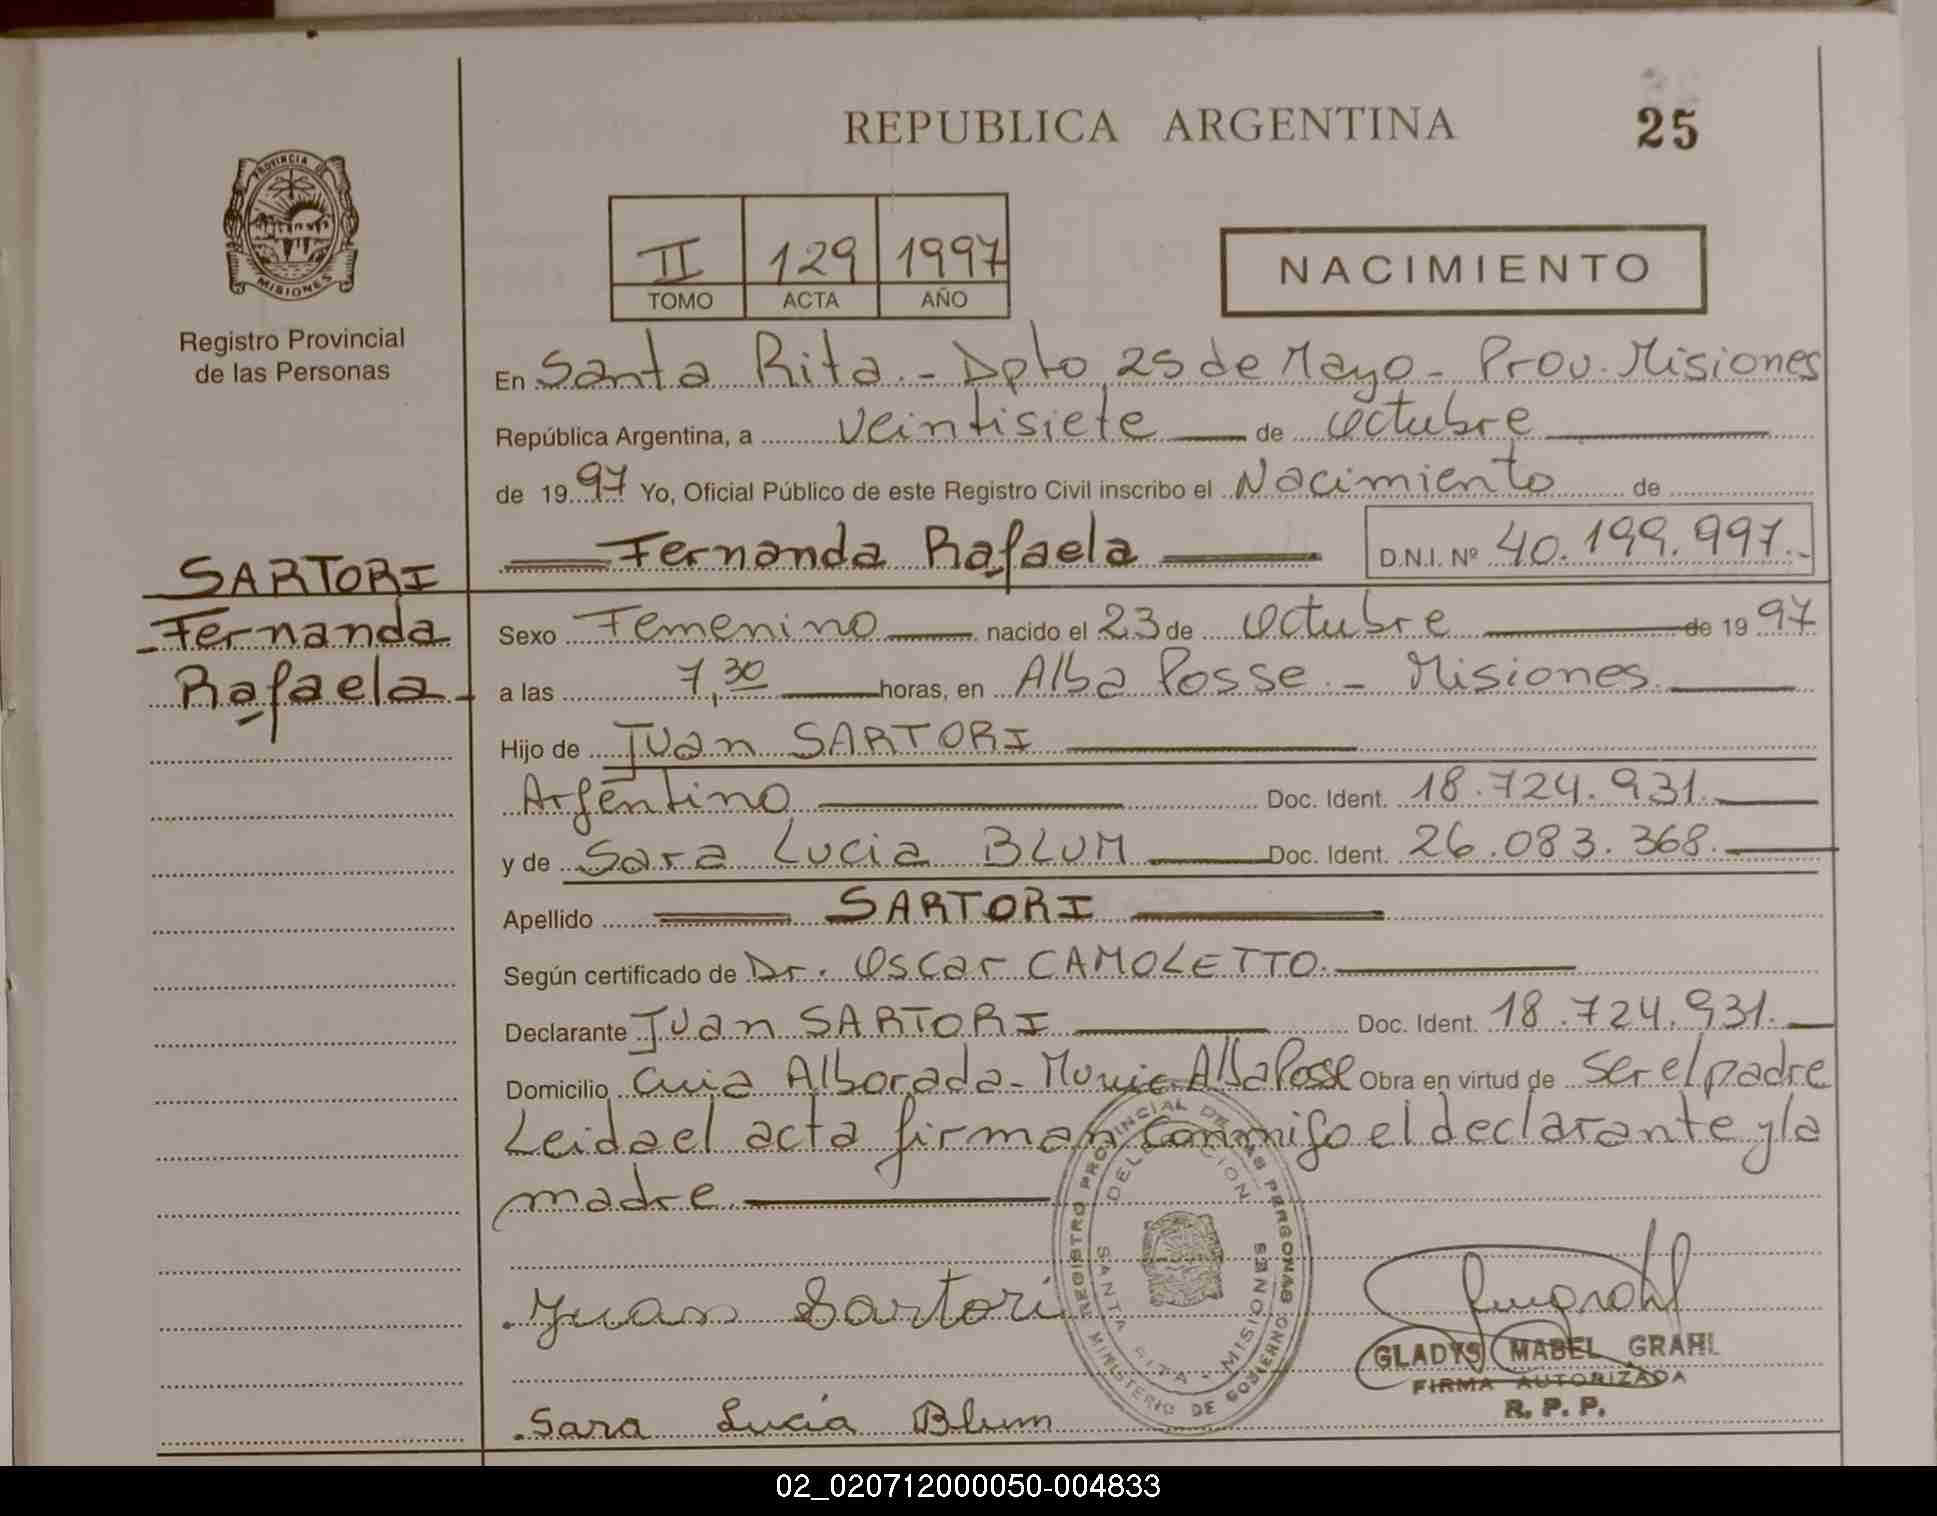 REPUBLICA ARGENTINA
25
PROVINCIA DE
MISIONES
Registro Provincial
de las Personas
II 129 1997
TOMO ACTA AÑO
NACIMIENTO
En Santa Rita - Dpto 25 de Mayo - Prov. Misiones
República Argentina, a veintisiete de octubre
de 1997 Yo, Oficial Público de este Registro Civil inscribo el Nacimiento de
Fernanda Rafaela D.N.I. Nº 40.199.997.-
SARTORI
Fernanda
Rafaela
Sexo Femenino nacido el 23 de octubre de 1997
a las 7,30 horas, en Alba Posse - Misiones
Hijo de Juan SARTORI
Argentino Doc. Ident. 18.724.931.
y de Sara Lucia BLUM Doc. Ident. 26.083.368.
Apellido SARTORI
Según certificado de Dr. Oscar CAMOLETTO.
Declarante Juan SARTORI Doc. Ident. 18.724.931.
Domicilio Alborada - Munic Alba Posse Obra en virtud de ser el padre
Leida el acta firman conmigo el declarante y la
madre
REGISTRO PROVINCIAL DE LAS PERSONAS
MINISTERIO DE GOBIERNO
DELEGACION
SANTA RITA - MISIONES
Juan Sartori
GLADYS MABEL GRAHL
FIRMA AUTORIZADA
R. P. P.
Sara Lucía Blum
02_020712000050-004833